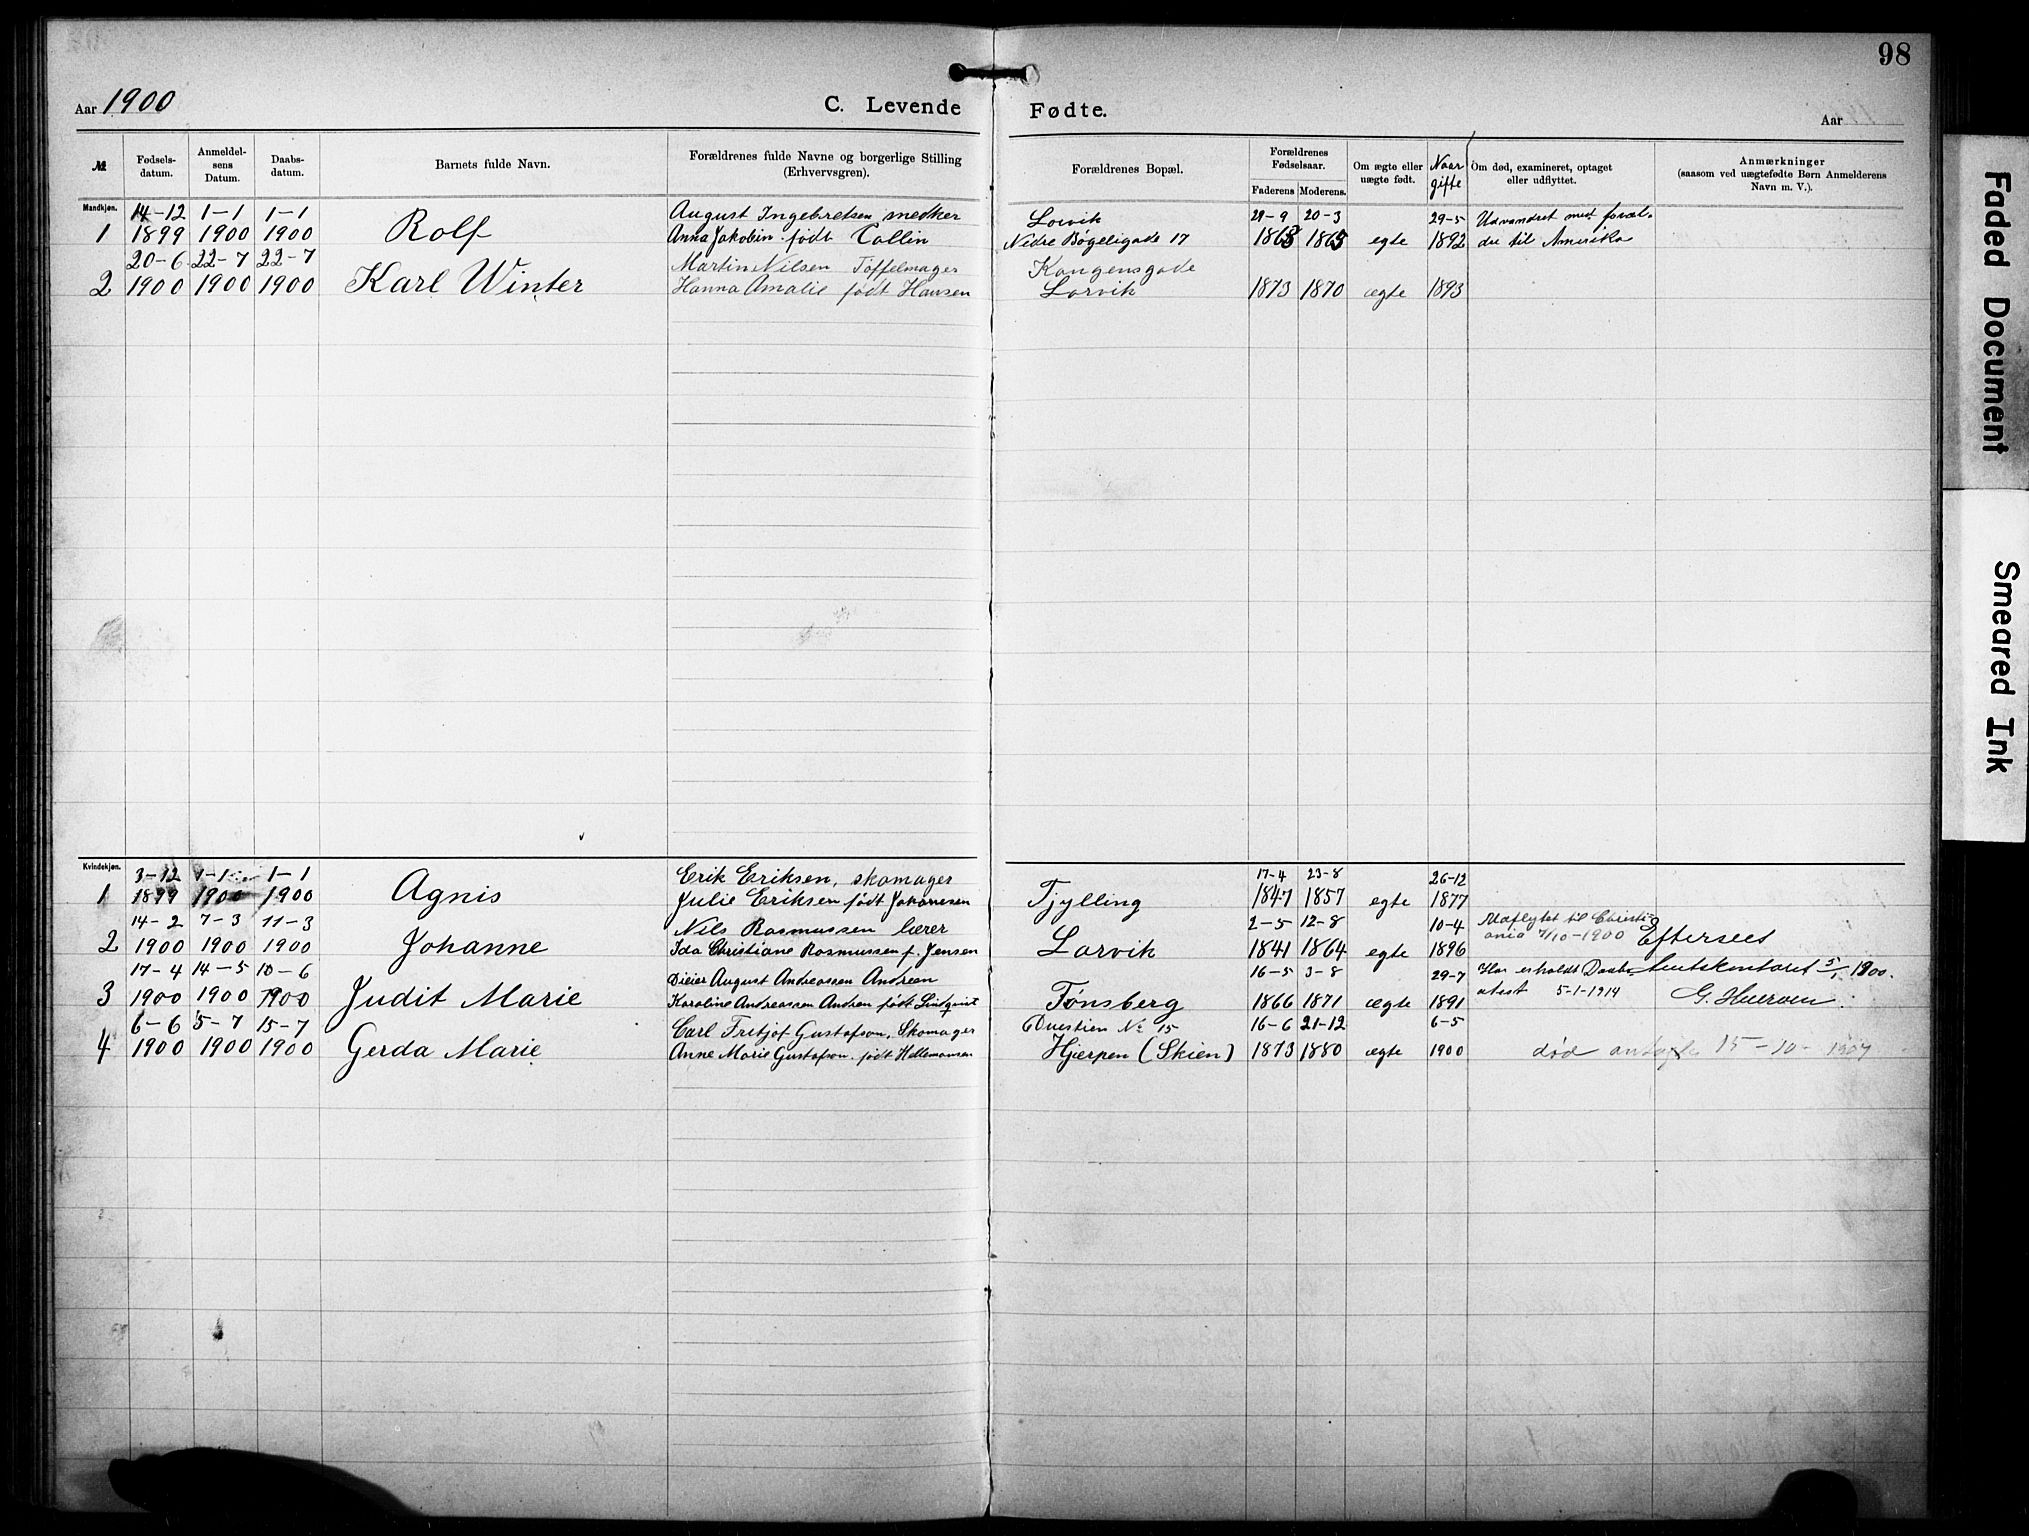 98
Aar 1900 C. Levende Fødte. Aar
№ Fødsels-datum. Anmeldel-sens Datum. Daabs-datum. Barnets fulde Navn. Forældrenes fulde Navne og borgerlige Stilling (Erhvervsgren). Forældrenes Bopæl. Forældrenes Fødselsaar. Faderens Moderens. Om ægte eller uægte født. Naar gifte Om død, examineret, optaget eller udflyttet. Anmærkninger (saasom ved uægtefødte Børn Anmelderens Navn m. V.).
Mandkjøn. 14-12 1-1 1-1 August Ingebretsen snedker Larvik 29-9 20-3 29-5 Udvandret med foræl-
1 1899 1900 1900 Rolf Anna Jakobin født Collin Nedre Bøgeligade 17 1868 1865 egte 1892 dre til Amerika
20-6 22-7 22-7 Martin Nilsen Tøffelmager Kongensgade
2 1900 1900 1900 Karl Winter Hanna Amalie født Hansen Larvik 1873 1870 ægte 1893
Kvindekjøn. 3-12 1-1 1-1 Erik Eriksen, skomager 17-4 23-8 26-12
1 1899 1900 1900 Agnis Julie Eriksen født Johanesen Tjylling 1847 1857 egte 1877
14-2 7-3 11-3 Nils Rasmussen lærer 2-5 12-8 10-4 Udflytet til Christi-
2 1900 1900 1900 Johanne Ida Christiane Rasmussen f. Jensen Larvik 1841 1864 egte 1896 ania 7/10-1900 Eftersees
17-4 14-5 10-6 August Andreassen Andreen 16-5 3-8 29-7 Har erholdt Daabs- 5/1 1900.
3 1900 1900 1900 Judit Marie Karoline Andreassen Andren født Lindqvist Tønsberg 1866 1871 ægte 1891 attest 5-1-1914 G.
6-6 5-7 15-7 Carl Fritjof Gustafson, Skomager No 15 16-6 21-12 6-5
4 1900 1900 1900 Gerda Marie Anne Marie Gustafson. født Hellemansen Hjerpen (Skien) 1873 1880 ægte 1900 død 15-10-1907
Faded Document
Smeared Ink